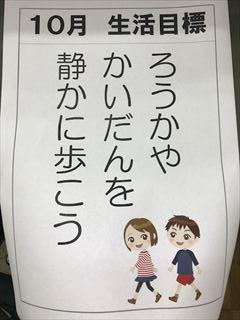 10月　生活目標
ろうかや
かいだんを
静かに歩こう